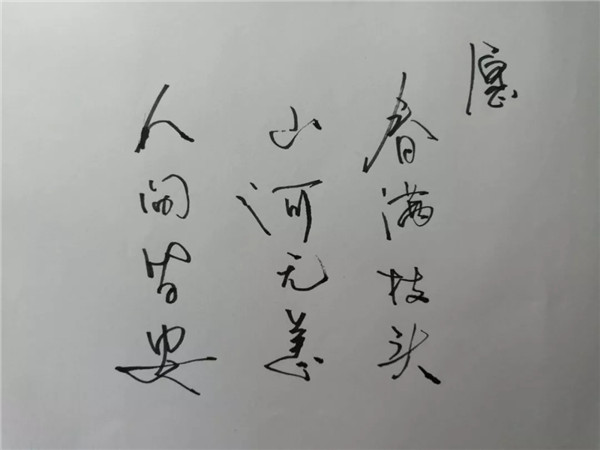 愿
春满枝头
山河无恙
人间皆安